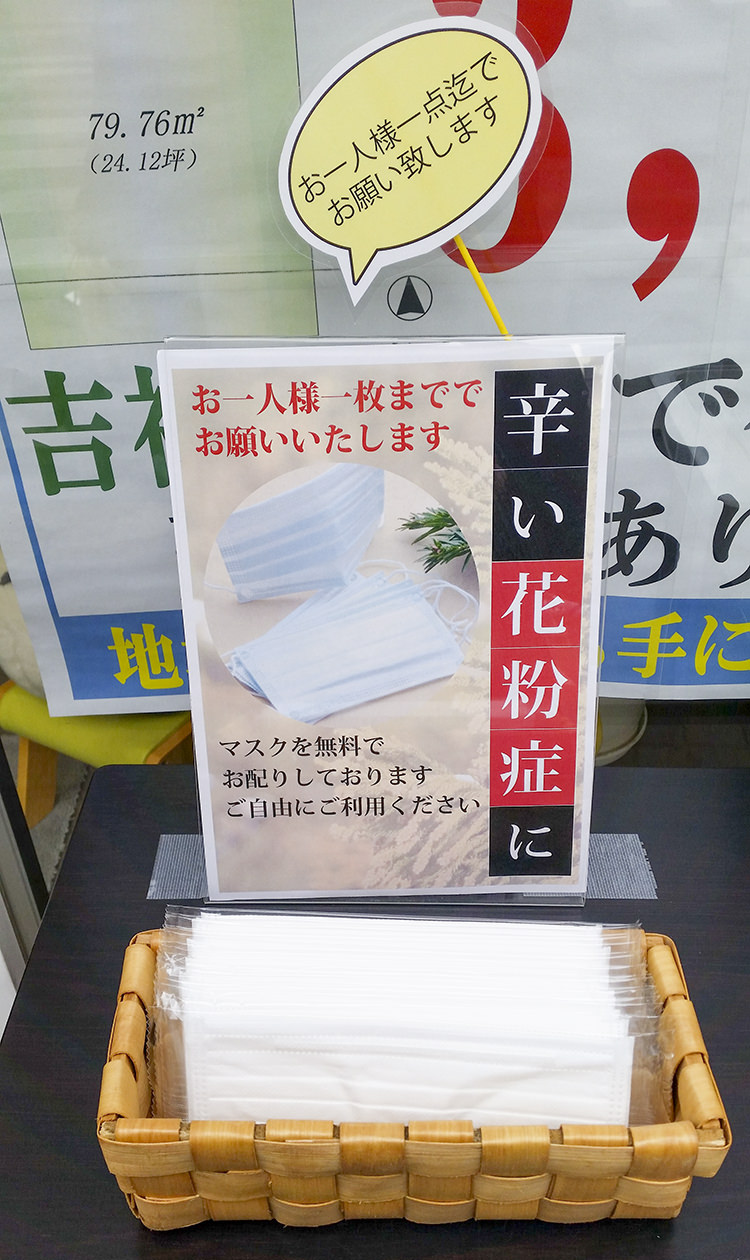 79.76㎡
(24.12坪)
お一人様一点迄で
お願い致します
お一人様一枚までで
お願いいたします
辛い花粉症に
マスクを無料で
お配りしております
ご自由にご利用ください
吉
で
あり
地
手に